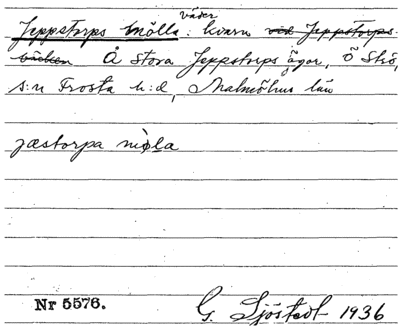 Jeppstorps mölla: väderkvarn vid Jeppstorps-
bäcken Å Stora Jeppstorps ägor, Ö Strö,
s:n Frosta h:d, Malmöhus län
jæstorpa mòla
Nr 5576.
G. Sjöstedt 1936